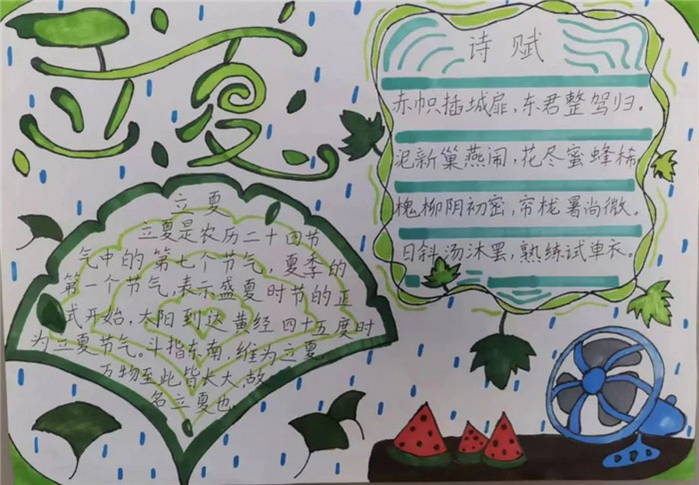 立夏
诗赋
赤帜插城扉，东君整驾归。
泥新巢燕闹，花尽蜜蜂稀。
槐柳阴初密，帘栊暑尚微。
日斜汤沐罢，熟练试单衣。
立夏
立夏是农历二十四节
气中的第七个节气，夏季的
第一个节气，表示盛夏时节的正
式开始，太阳到达黄经四十五度时
为立夏节气。斗指东南，维为立夏，
万物至此皆长大，故
名立夏也。